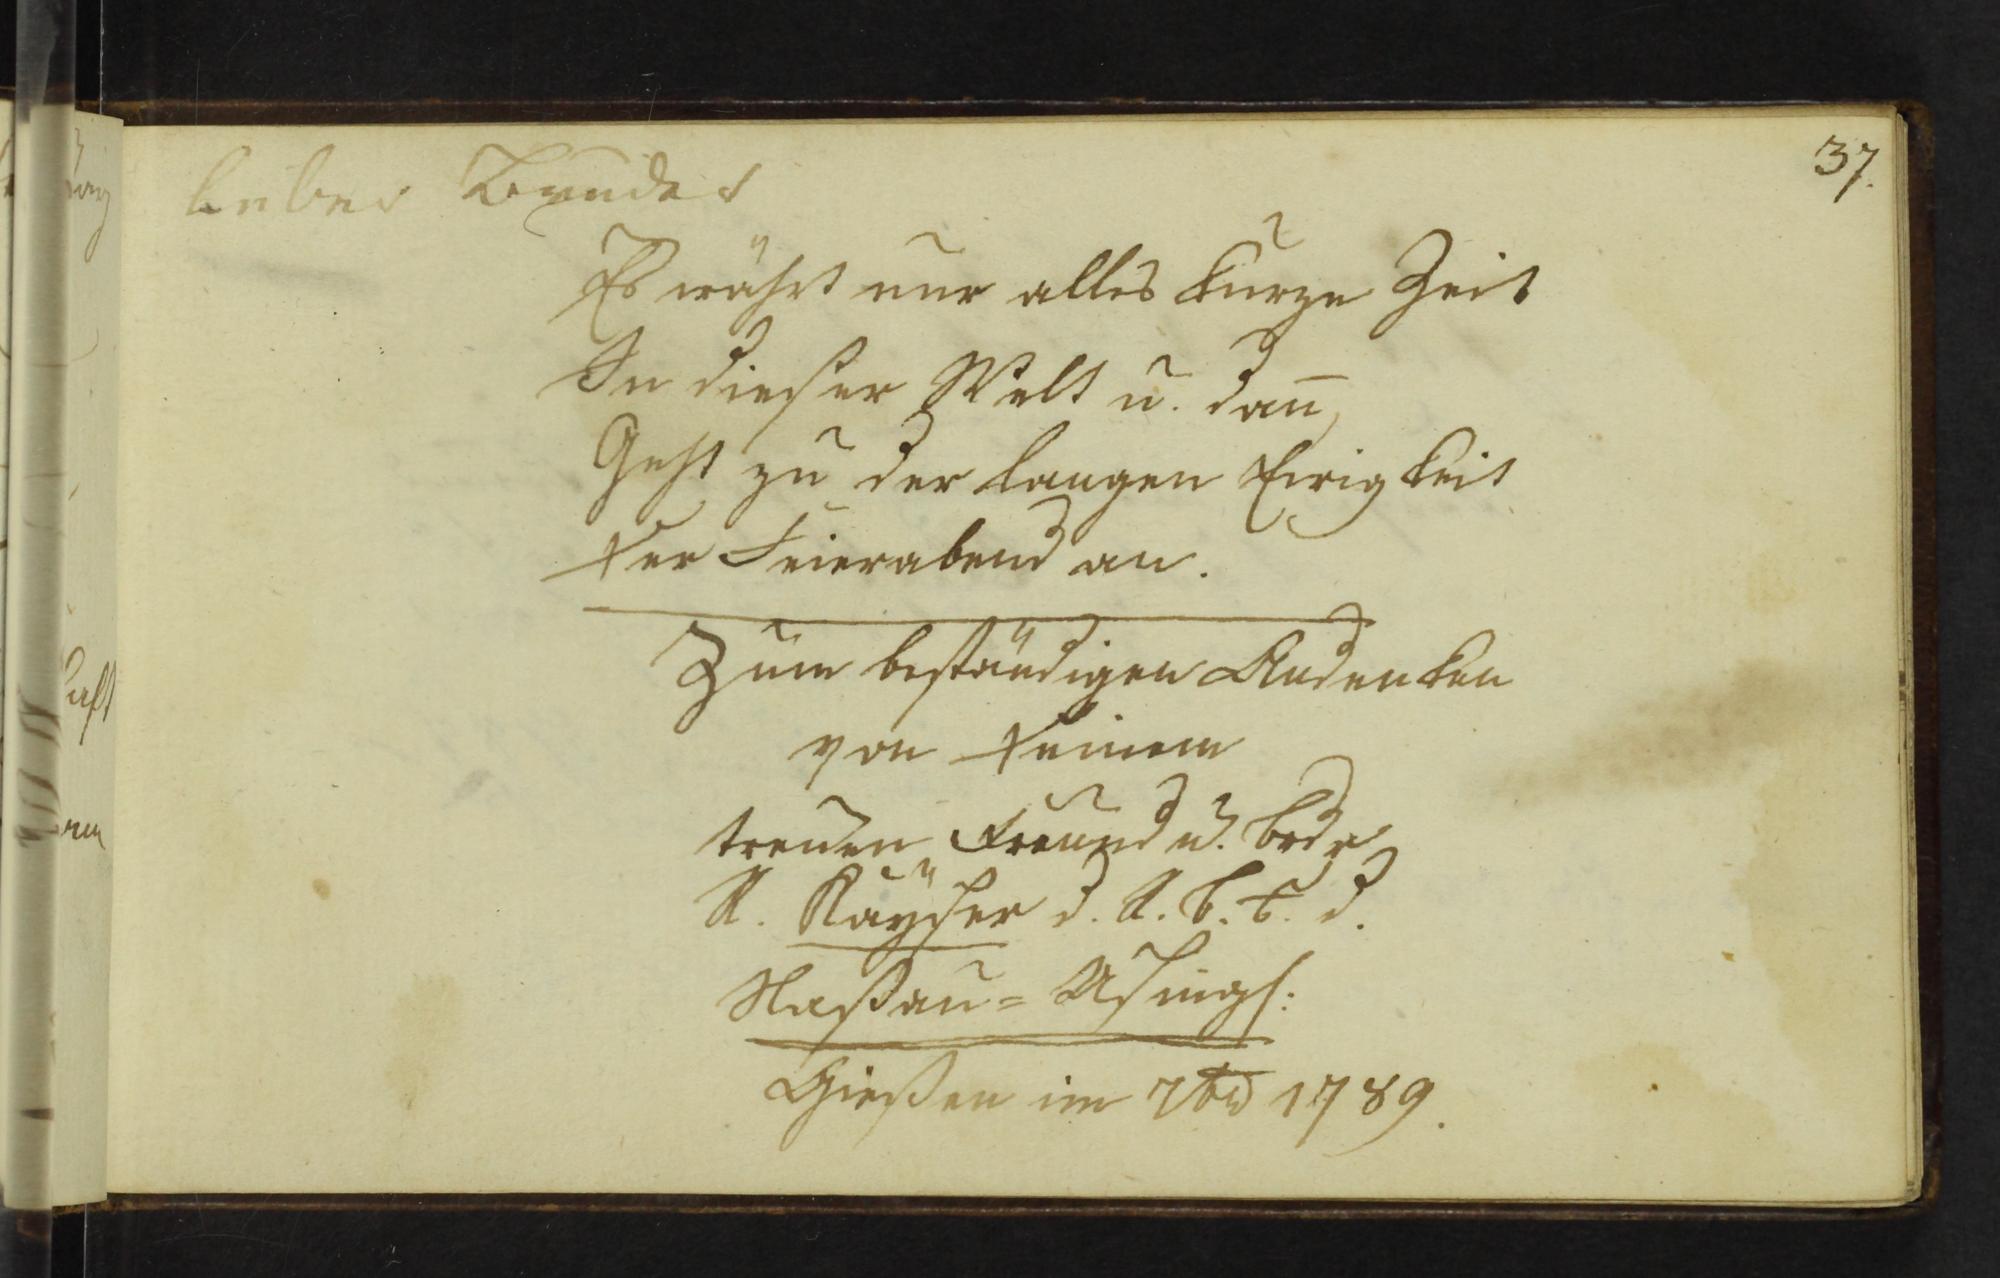 37.
Lieber Bruder
Es währt nur alles kurze Zeit
In dieser Welt u. dann
Geht zu der langen Ewigkeit
Der Feierabend an.
Zum beständigen Andenken
von Deinem
treuen Freund u. brdr
A. Kayser d. A. b. E. d.
Naßau=Usingl:
Gießen im 7br 1789.